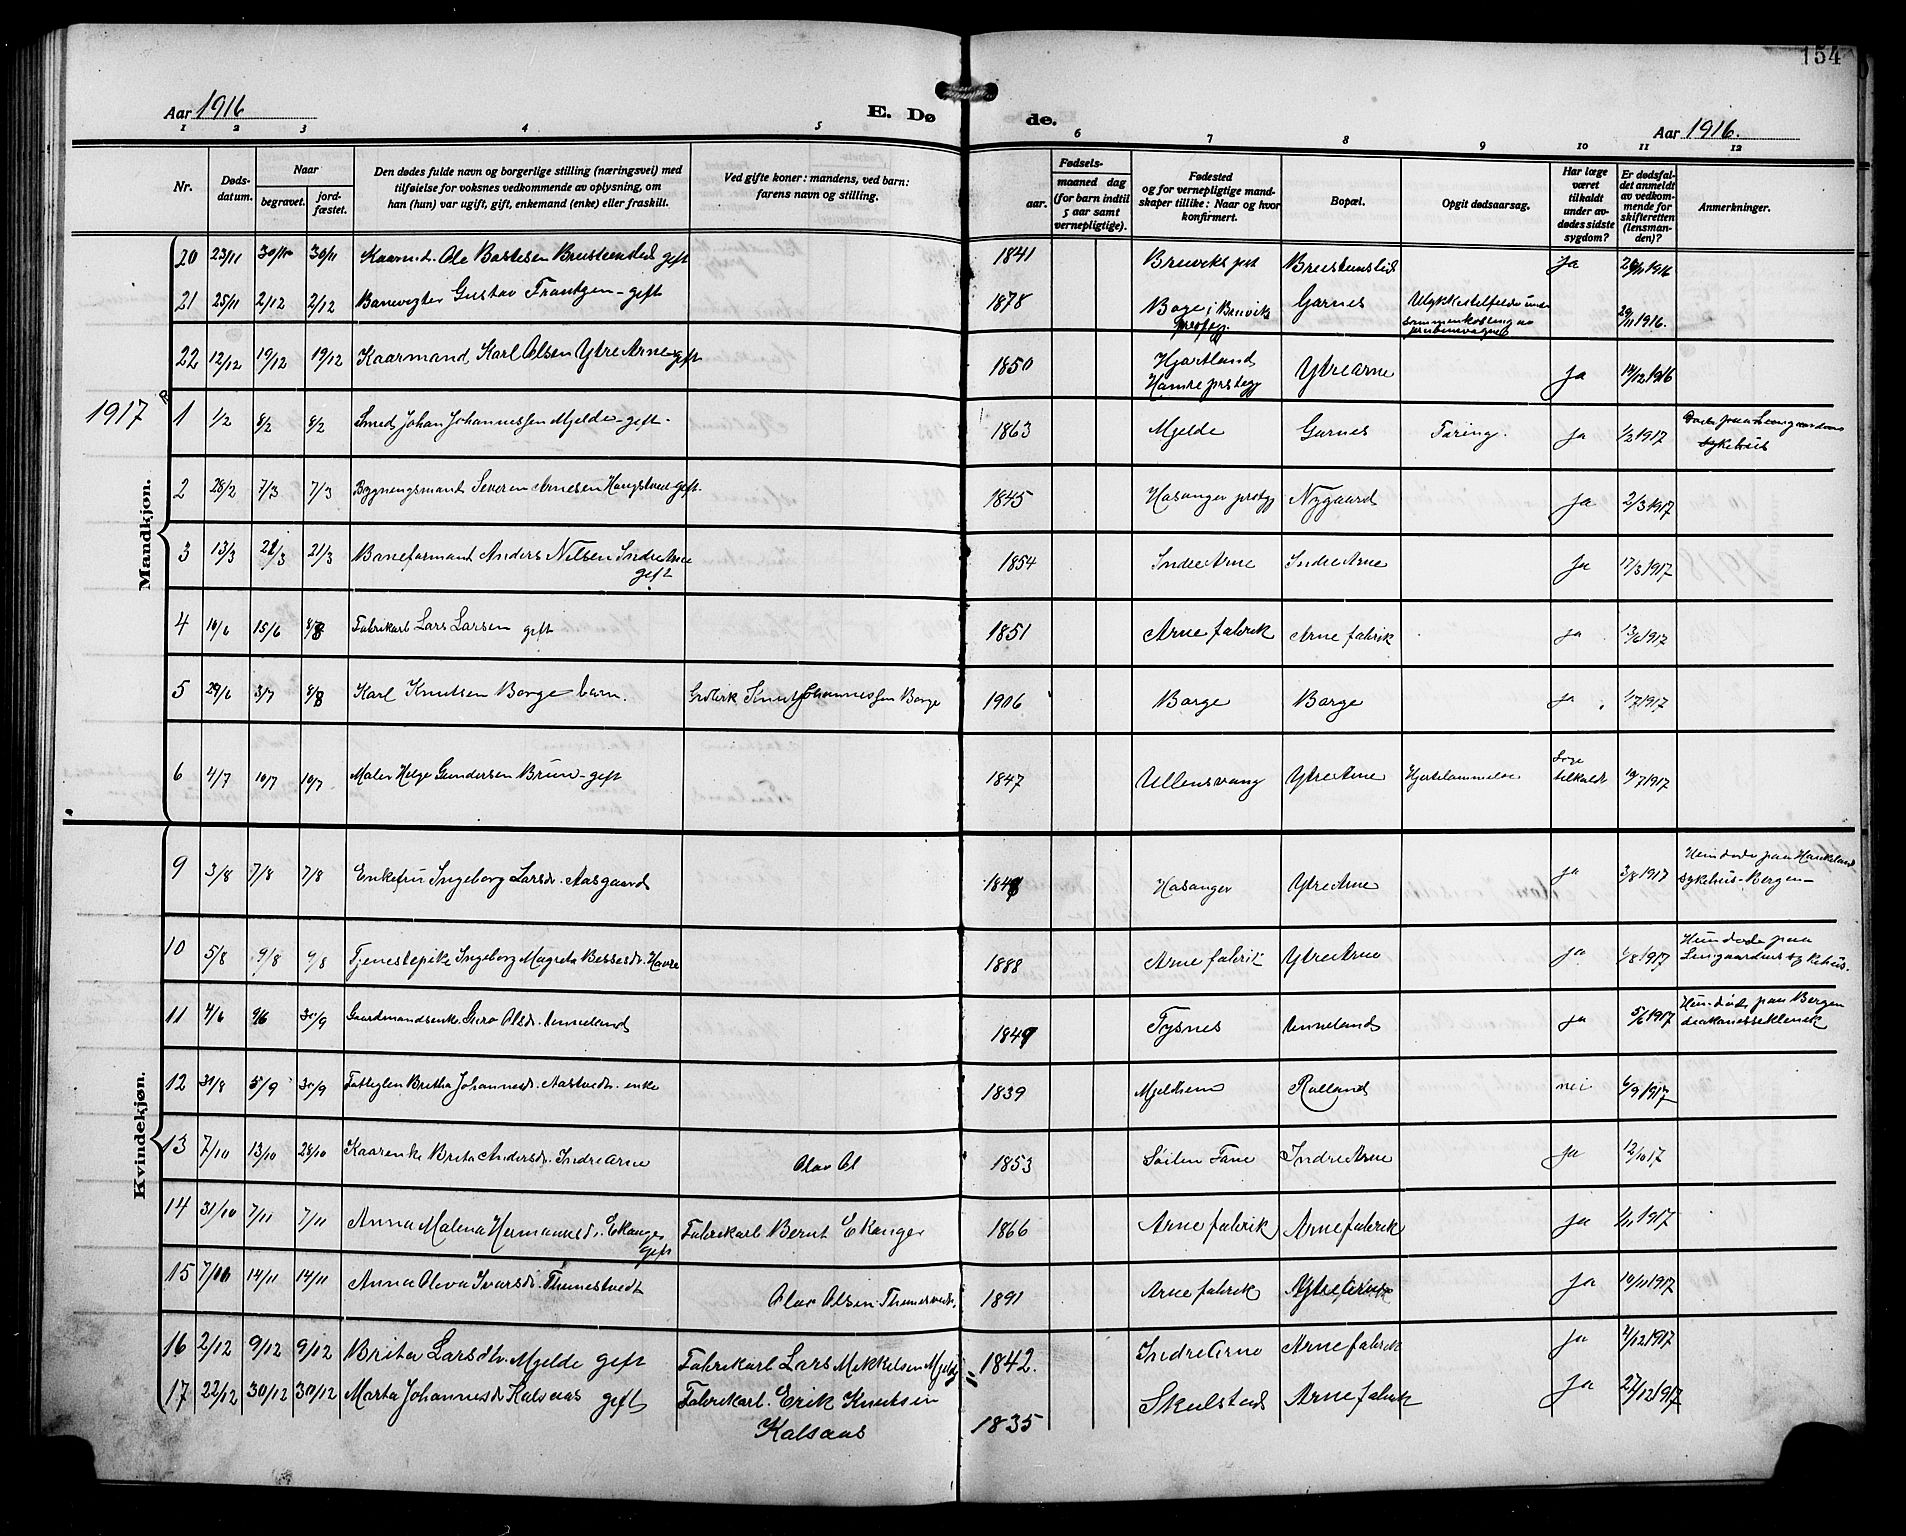 154
Aar 1916
E. Dø de.
Aar 1916.
1 2 3 4 5 6 7 8 9 10 11 12
Nr.
Døds-
datum.
Naar
begravet.
jord-
fæstet.
Den dødes fulde navn og borgerlige stilling (næringsvei) med
tilføielse for voksnes vedkommende av oplysning, om
han (hun) var ugift, gift, enkemand (enke) eller fraskilt.
Ved gifte koner: mandens, ved barn:
farens navn og stilling.
Fødsels-
aar. maaned dag
(for barn indtil
5 aar samt
vernepligtige).
Fødested
og for vernepligtige mand-
skaper tillike: Naar og hvor
konfirmert.
Bopæl.
Opgit dødsaarsag.
Har læge
været
tilkaldt
under av-
dødes sidste
sygdom?
Er dødsfal-
det anmeldt
av vedkom-
mende for
skifteretten
(lensman-
den)?
Anmerkninger.
Mandkjøn.
20 23/11 30/11 30/11 Kaarm. Ole Bastesen gift 1841 Breviks pst ja 1916
21 25/11 2/12 2/12 Banevogter Gustav Frantzen - gift 1878 Garnes 29/11 1916.
22 12/12 19/12 19/12 Kaarmand Karl Olsen Ytre Arne gift 1850 Hjortland Hamre prstegj Ytre Arne ja 14/12 1916
1917
1 1/2 8/2 8/2 Smed Johan Johannessen Mjelde - gift. 1863 Mjelde Garnes Tæring. ja 1/2 1917 sykehus
2 28/2 7/3 7/3 Bygningsmand Severin Arnesen Haugstvedt gift. 1845 Hosanger prstgj Nygaard ja 2/3 1917
3 13/3 21/3 21/3 Baneformand Anders Nilsen Indre Arne
gift 1854 Indre Arne Indre Arne ja 17/3 1917
4 10/6 15/6 8/8 Fabrikarb Lars Larsen gift 1851 Arne fabrik Arne fabrik ja 13/6 1917
5 29/6 3/7 8/8 Karl Knutsen Borge barn. Knut Johannessen Borge 1906 Borge Borge ja 1/7 1917
6 4/7 10/7 10/7 Maler Helge Gundersen Brun - gift 1847 Ullensvang Ytre Arne Hjertelammelse Læge
tilkaldt 10/7 1917
Kvindekjøn.
9 3/8 7/8 7/8 Enkefru Ingeborg Larsdr. Aasgaard 1848 Hosanger Ytre Arne ja 3/8 1917 Hun døde paa Haukeland
sykehus - Bergen -
10 5/8 9/8 9/8 Tjenestepike Ingeborg Magreta Bessesdr. Havre 1888 Arne fabrik Ytre Arne ja 6/8 1917 Hun døde paa
Lungaardens sykehus.
11 4/6 9/6 30/9 Gaardmandsenke Guro Olsdr. Unneland 1849 Tysnes Unneland ja 5/6 1917 Hun døde paa Bergen
diakonisseklinik
12 31/8 5/9 30/9 Fattiglem Britha Johannesdr. Aastvedt. enke 1839 Mjeldheim Rolland nei 6/9 1917
13 7/10 13/10 28/10 Kaarenke Brita Andersdr. Indre Arne Olav Ol 1853 Søilen Fane Indre Arne ja 12/10 17
14 31/10 7/11 7/11 Anna Malena Hermannsdr. Ekanger
gift Fabrikarb Bernt Ekanger 1866 Arne fabrik Arne fabrik ja 1/11 1917
15 14/11 14/11 Anna Oliva Ivarsdr. Thunestvedt Olav Olsen Thunestvedt, 1891 Arne fabrik Ytre Arne ja 10/11 1917
16 2/12 9/12 9/12 Brita Larsdtr. Mjelde gift Fabrikarb Lars Mikkelsen Mjelde 1842. Indre Arne Arne fabrik ja 4/12 1917
17 22/12 30/12 30/12 Marta Johannesdr Kalsaas gift Fabrikarb. Erik Knutsen
Kalsaas 1835 Skulstad Arne fabrik ja 27/12 1917